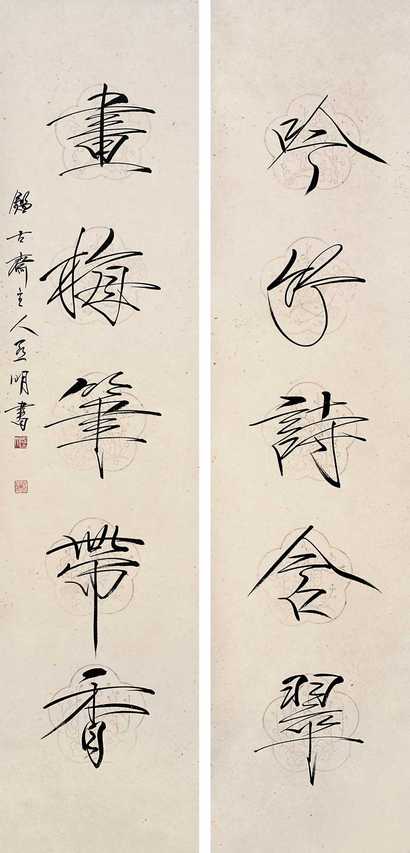 吟竹詩含翠
畫梅筆帶香
古齋主人 明書